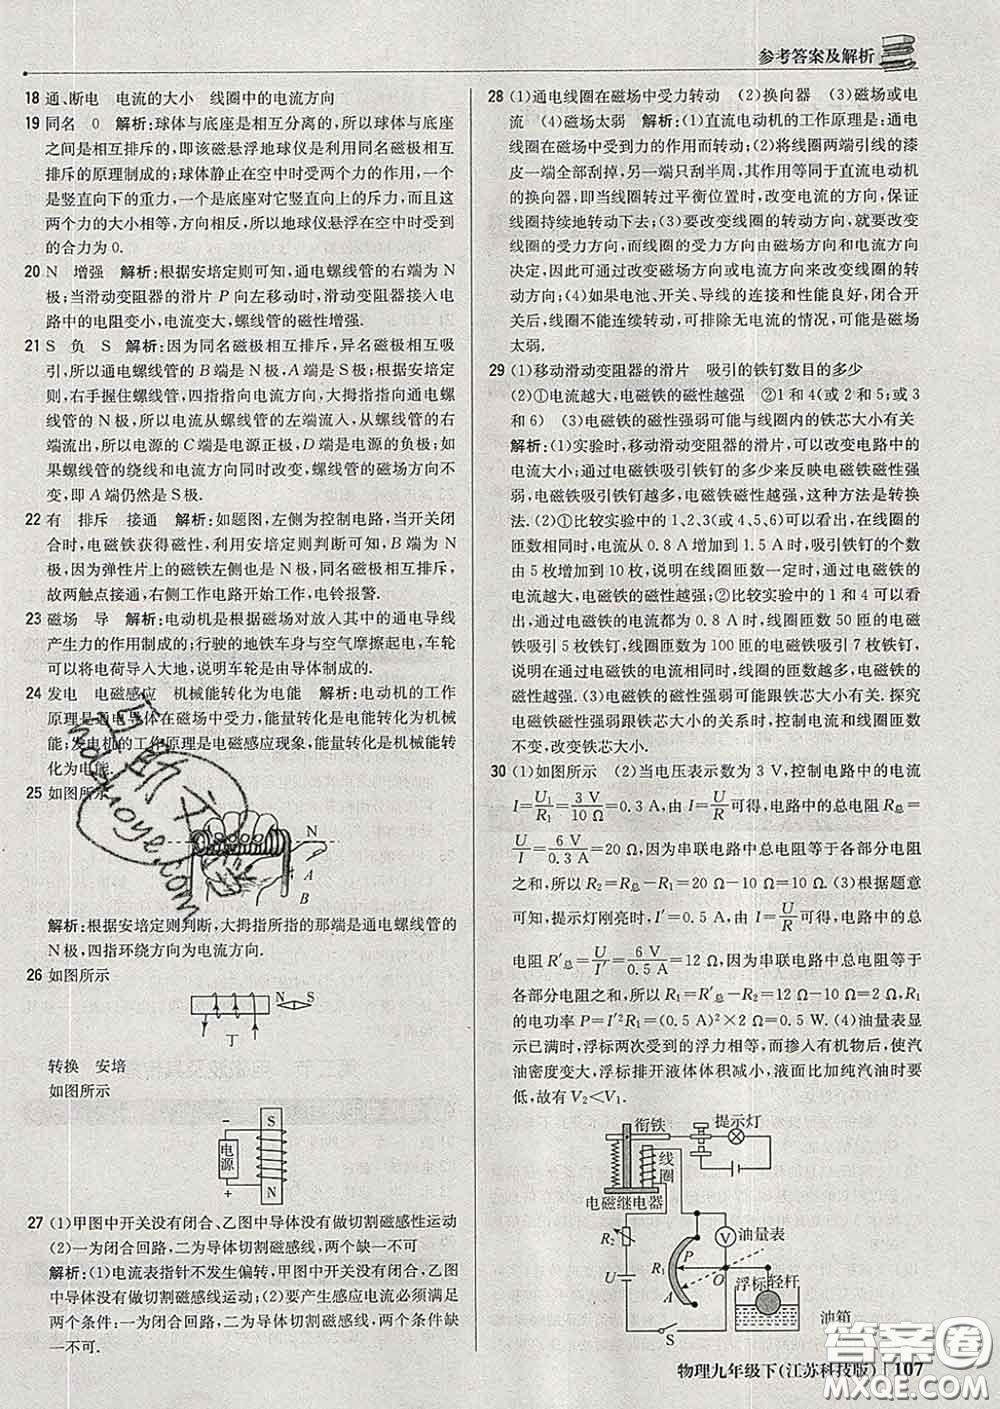 参考答案及解析
18 通、断电　电流的大小　线圈中的电流方向
19 同名　0　解析:球体与底座是相互分离的,所以球体与底座
之间是相互排斥的,即该磁悬浮地球仪是利用同名磁极相互
排斥的原理制成的;球体静止在空中时受两个力的作用,一个
是竖直向下的重力,一个是底座对它竖直向上的斥力,而且这
两个力的大小相等,方向相反,所以地球仪悬浮在空中时受到
的合力为0.
20 N　增强　解析:根据安培定则可知,通电螺线管的右端为N
极;当滑动变阻器的滑片P向左移动时,滑动变阻器接入电
路中的电阻变小,电流变大,螺线管的磁性增强.
21 S　负　S　解析:因为同名磁极相互排斥,异名磁极相互吸
引,所以通电螺线管的B端是N极,A端是S极.根据安培定
则,右手握住螺线管,四指指向电流方向,大拇指指向通电螺
线管的N极,所以电流从螺线管的左端流入,从螺线管的右
端流出,所以电源的C端是电源正极,D端是电源的负极;如
果螺线管的绕线和电流方向同时改变,螺线管的磁场方向不
变,即A端仍然是S极.
22 有　排斥　接通　解析:如题图,左侧为控制电路,当开关闭
合时,电磁铁获得磁性,利用安培定则判断可知,B端为N
极,因为弹性片上的磁铁左侧也是N极,同名磁极相互排斥,
故两触点接通,右侧工作电路开始工作,电铃报警.
23 磁场　导　解析:电动机是根据磁场对放入其中的通电导线
产生力的作用制成的;行驶的地铁车身与空气摩擦起电,车轮
可以将电荷导入大地,说明车轮是由导体制成的.
24 发电　电磁感应　机械能转化为电能　解析:电动机的工作
原理是通电导体在磁场中受力,能量转化是电能转化为机械
能;发电机的工作原理是电磁感应现象,能量转化是机械能转
化为电能.
25 如图所示
N
A
B
解析:根据安培定则判断,大拇指所指的那端是通电螺线管的
N极,四指环绕方向为电流方向.
26 如图所示
N S
丁
转换　安培
如图所示
－ S
电源
＋ N
27 (1)甲图中开关没有闭合、乙图中导体没有做切割磁感性运动
(2)一为闭合回路,二为导体切割磁感线,两个缺一不可
解析:(1)电流表指针不发生偏转,甲图中开关没有闭合,乙图
中导体没有做切割磁感线运动;(2)要产生感应电流必须满足
两个条件:一为闭合回路,二为切割磁感线运动,两个条件缺
一不可.
28 (1)通电线圈在磁场中受力转动　(2)换向器　(3)磁场或电
流　(4)磁场太弱　解析:(1)直流电动机的工作原理是:通电
线圈在磁场中受到力的作用而转动;(2)将线圈两端引线的漆
皮一端全部刮掉,另一端只刮半周,其作用等同于直流电动机
的换向器,即当线圈转过平衡位置时,改变电流的方向,保证
线圈持续地转动下去;(3)要改变线圈的转动方向,就要改变
线圈的受力方向,而线圈的受力方向是由磁场方向和电流方向
决定,因此可通过改变磁场方向或电流方向来改变线圈的转
动方向;(4)如果电池、开关、导线的连接和性能良好,闭合开
关后,线圈不能连续转动,可排除无电流的情况,可能是磁场
太弱.
29 (1)移动滑动变阻器的滑片　吸引的铁钉数目的多少
(2)①电流越大,电磁铁的磁性越强　②1和4(或2和5;或3
和6)　(3)电磁铁的磁性强弱可能与线圈内的铁芯大小有关
解析:(1)实验时,移动滑动变阻器的滑片,可以改变电路中的
电流大小;通过电磁铁吸引铁钉的多少来反映电磁铁磁性强
弱,电磁铁吸引铁钉越多,电磁铁磁性越强,这种方法是转换
法.(2)①比较实验中的1、2、3(或4、5、6)可以看出,在线圈的
匝数相同时,电流从0.8 A增加到1.5 A时,吸引铁钉的个数
由5增加到10枚,说明在线圈匝数一定时,通过电磁铁的电
流越大,电磁铁的磁性越强;②比较实验中的1和4可以看
出,当通过电磁铁的电流都为0.8 A时,线圈匝数50匝的电
磁铁吸引5枚铁钉,线圈匝数为100匝的电磁铁吸引7枚铁钉,
说明在通过电磁铁的电流相同时,线圈的匝数越多,电磁铁的
磁性越强.(3)电磁铁的磁性强弱可能与铁芯大小有关.探究
电磁铁的磁性强弱跟铁芯大小的关系时,控制电流和线圈匝数
不变,改变铁芯大小.
30 (1)如图所示　(2)当电压表示数为3 V,控制电路中的电流
I=U₁/R₁=3 V/10 Ω=0.3 A,由I=U/R可得,电路中的总电阻R总=
U/I=6 V/0.3 A=20 Ω,因为串联电路中总电阻等于各部分电阻
之和,所以R₂=R总－R₁=20 Ω－10 Ω=10 Ω.(3)根据题意
可知,提示灯刚亮时,I′=0.5 A,由I=U/R可得,电路中的总
电阻R′总=U/I′=6 V/0.5 A=12 Ω,因为串联电路中总电阻等于
各部分电阻之和,所以R₁=R′总－R₂=12 Ω－10 Ω=2 Ω,R₁
的电功率P=I′²R₁=(0.5 A)²×2 Ω=0.5 W.(4)油量表显
示相同时,浮标两次受到的浮力相等,而掺入有机物后,使汽
油密度变大,浮标排开液体体积减小,液面比加纯汽油时要
低,故有V₂<V₁.
衔铁 提示灯
线圈
电磁继电器
R₂ V 油量表
P
R₁
U O
A 浮标 轻杆
S
油箱
物理九年级下(江苏科技版) 107
答案圈
MXQE.COM